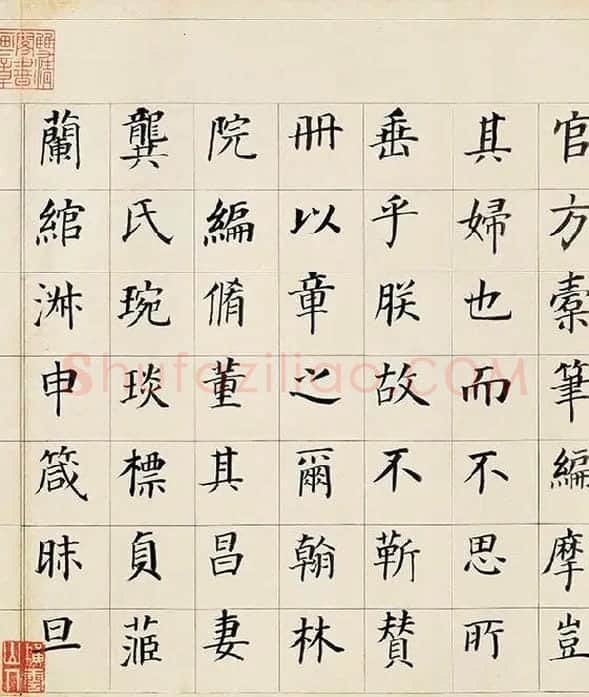 官方橐筆編摩豈
其婦也而不思所
垂乎朕故不靳賛
冊以章之爾翰林
院編脩董其昌妻
龔氏琬琰標貞
蘭綰淑申箴昧旦
Shufaziliao.COM